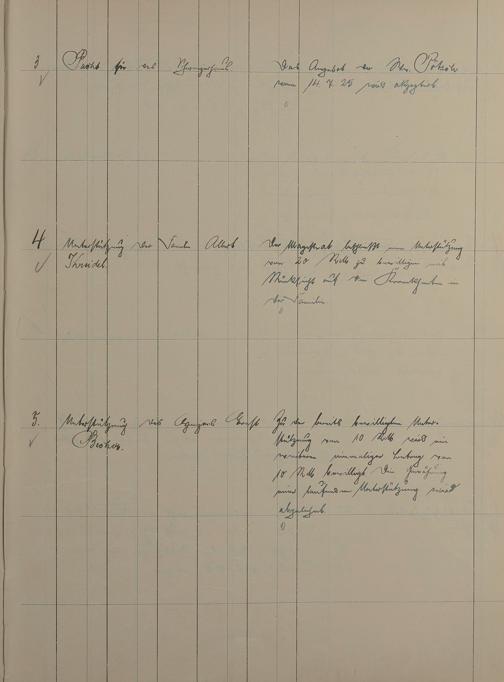 3 Pacht für das
Das Angebot der
vom 14.7.25 wird abgelehnt
4 Unterstützung der Familie Albert
Der Magistrat beschließt eine Unterstützung
von 20 Mk zu bewilligen mit
Rücksicht auf die Krankheit in
der Familie
5. Unterstützung des Ernst
Becker.
Zu der bereits bewilligten Unter-
stützung von 10 Mk wird ein
weiterer einmaliger Betrag von
10 Mk bewilligt. Die Gewährung
einer laufenden Unterstützung wird
abgelehnt